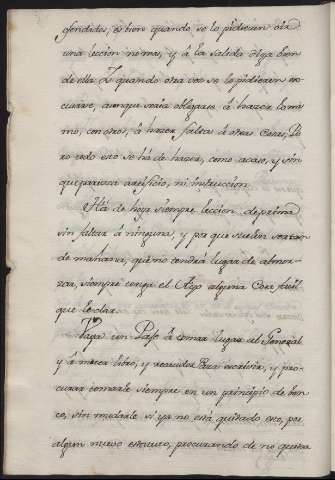 ofendido, es bien quando se lo pidieren oir
una leccion no mas, y á la salida diga bien
de ella. I quando otra vez se lo pidieren es-
cusarse, aunque seria obligarse á hazer lo mis-
mo, con otros, á hazer faltas á otras Cosas, Pe-
ro todo esto se há de hazer, como acaso, y sin
que paresca artificio, ni instruccion.
Há de hoyr siempre leccion de prima
sin faltar á ninguna, y por que suelen ser tan
de mañana, que no tendrá lugar de almor-
zar, siempre tenga el Ayo alguna Cosa facil
que le dar.
Vaya un Paje á tomar lugar al General
y á meter libro, y recaudos Para escrivir, y pro-
curar tomarle siempre en un principio de ban-
co, sin mudarle si ya no está quitado ese, por
algun nuevo estatuto, procurando de no quitar